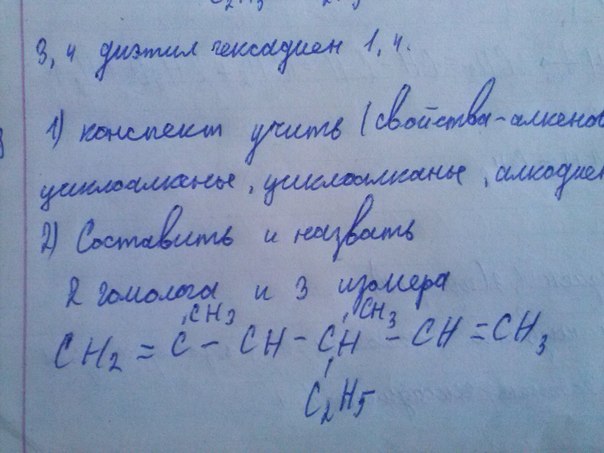 3,4 диэтил гексадиен 1,4.
1) конспект учить (свойства-алкенов
циклоалканы, циклоалканы, алкодиен
2) Составить и назвать
2 гомолога и 3 изомера
CH3 CH3
CH2 = C - CH - CH - CH = CH3
C2H5